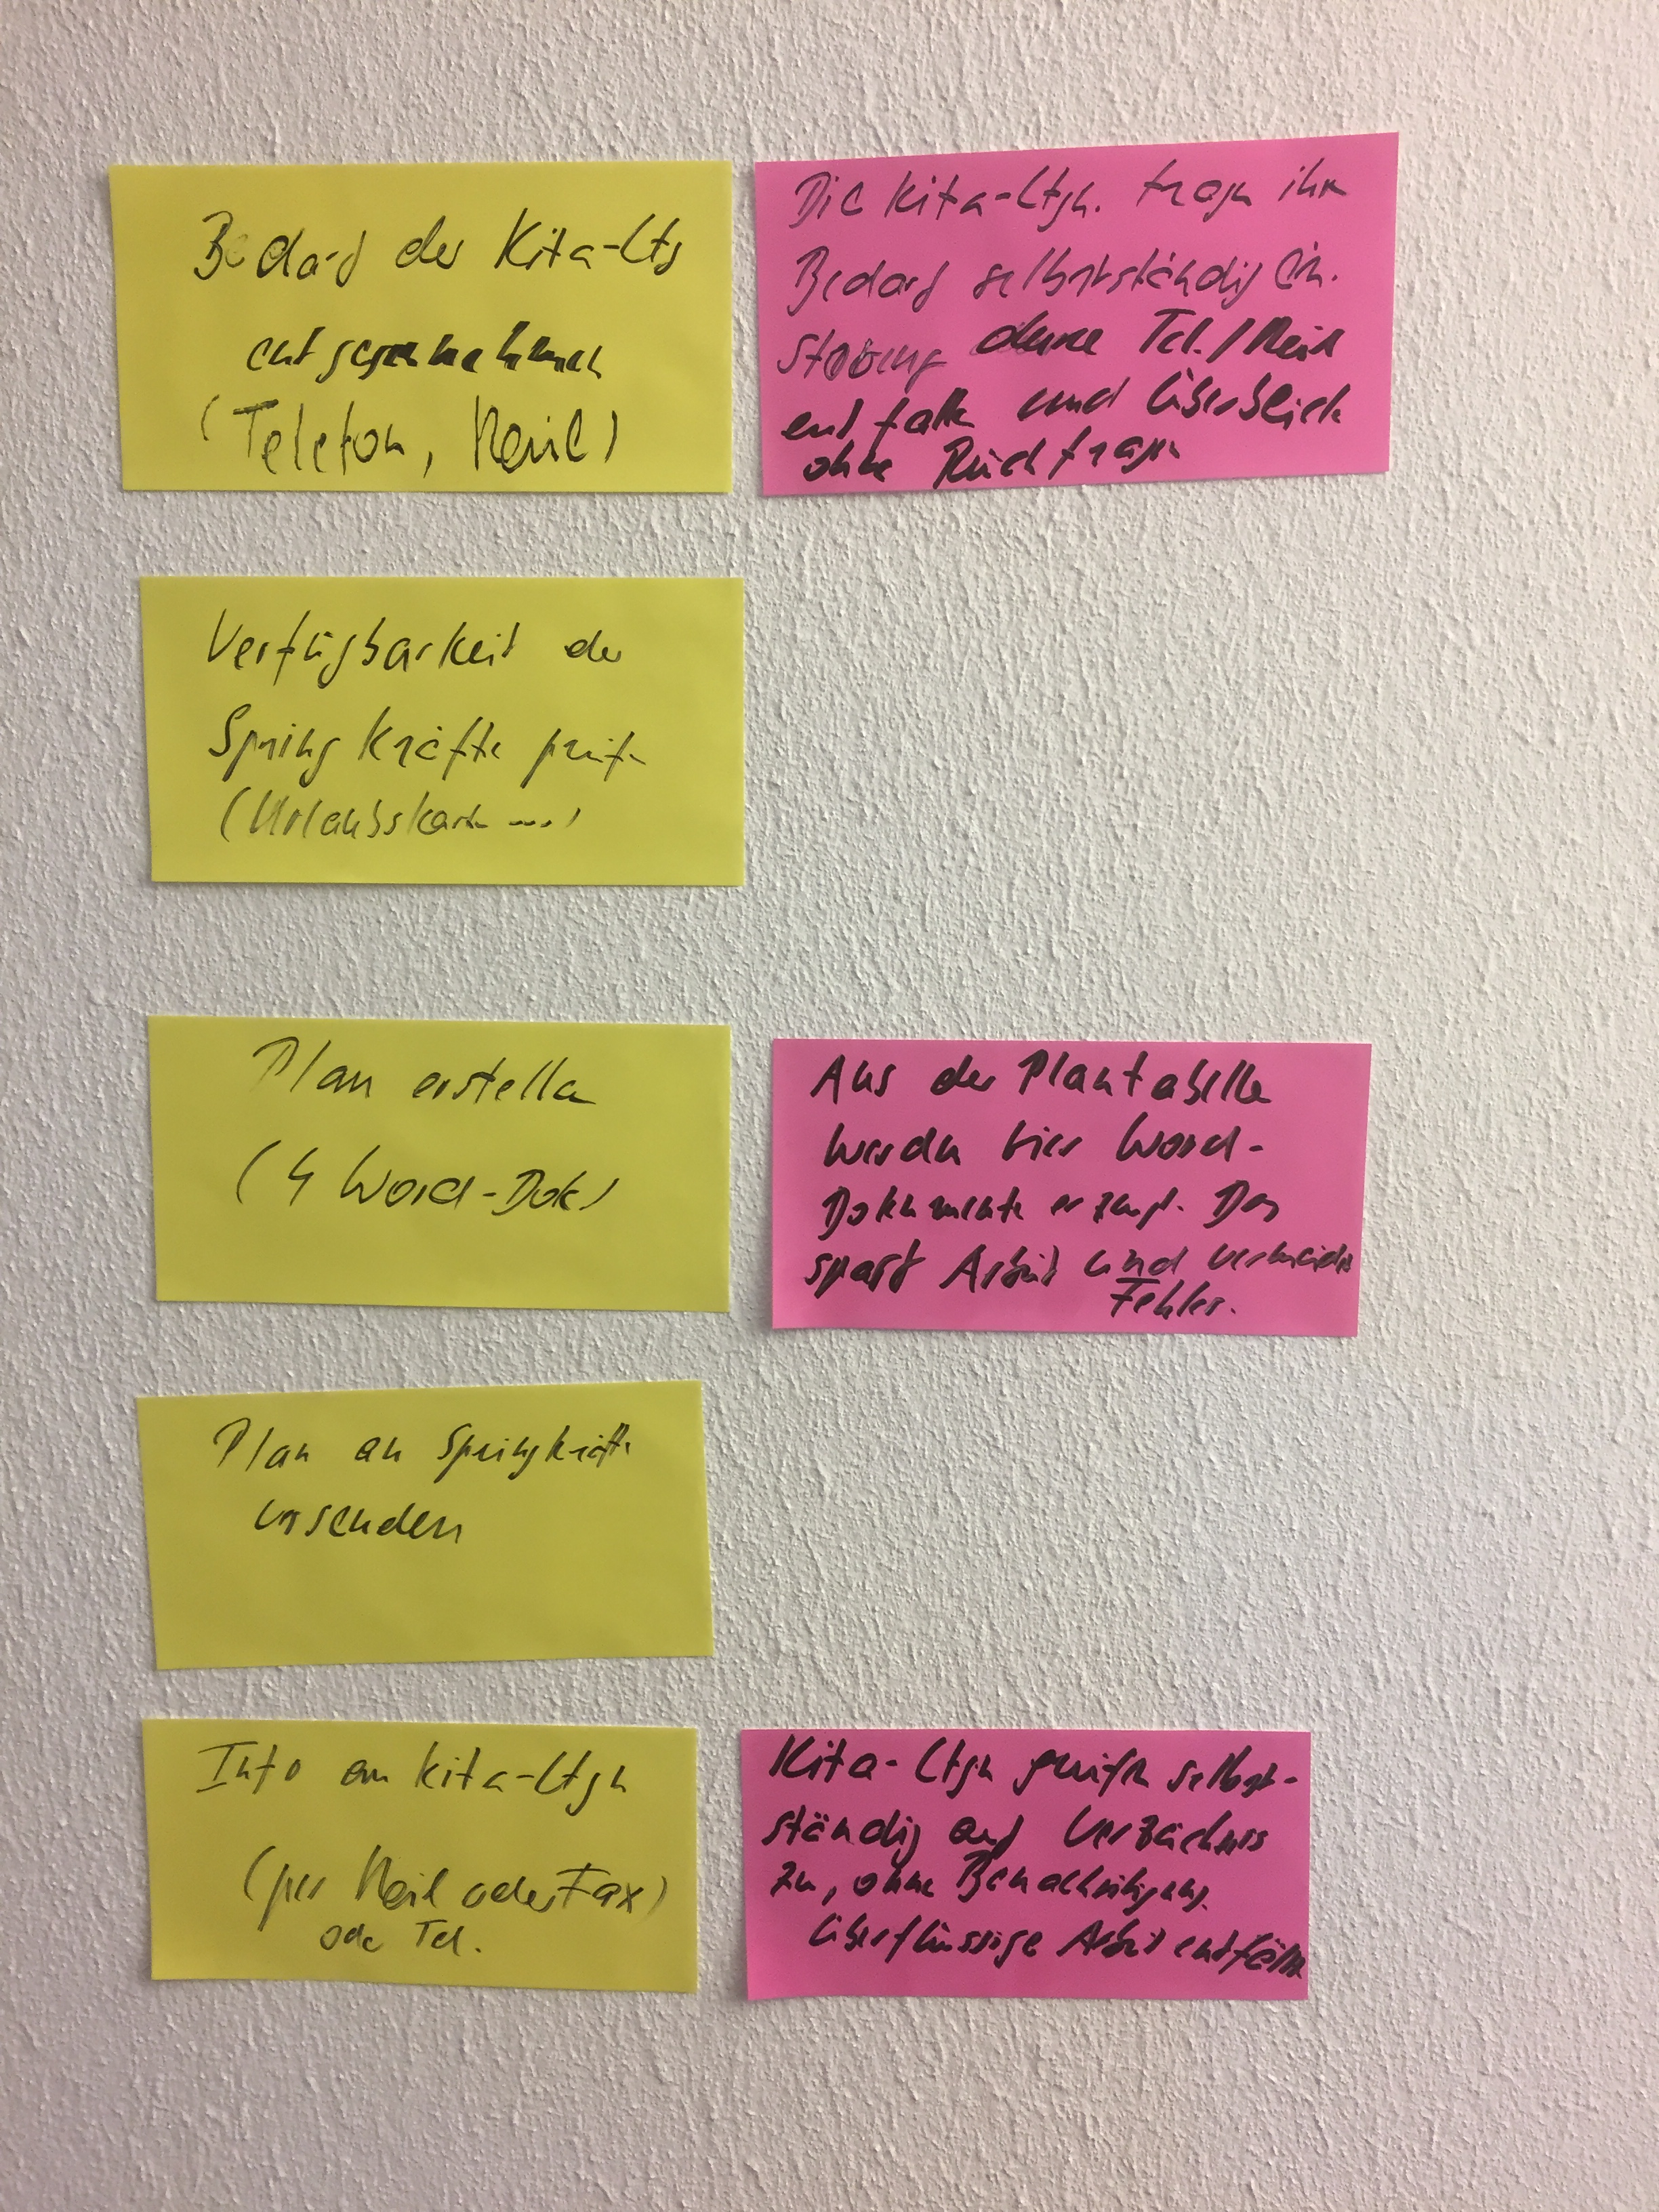 Bedarf der Kita-Ltg
entgegennehmen
(Telefon, Mail)
Die Kita-Ltgn. tragen ihren
Bedarf selbstständig ein.
Störung durch Tel./Mail
entfällt und Überblick
ohne Rückfragen
Verfügbarkeit der
Springkräfte prüfen
(Urlaubskarten ...)
Plan erstellen
(4 Word-Dok)
Aus der Plantabelle
werden vier Word-
Dokumente erzeugt. Das
spart Arbeit und vermeidet
Fehler.
Plan an Springkräfte
versenden
Info an Kita-Ltgn
(per Mail oder Fax)
oder Tel.
Kita-Ltgn greifen selbst-
ständig auf Verzeichnis
zu, ohne Benachrichtigung.
Überflüssige Arbeit entfällt